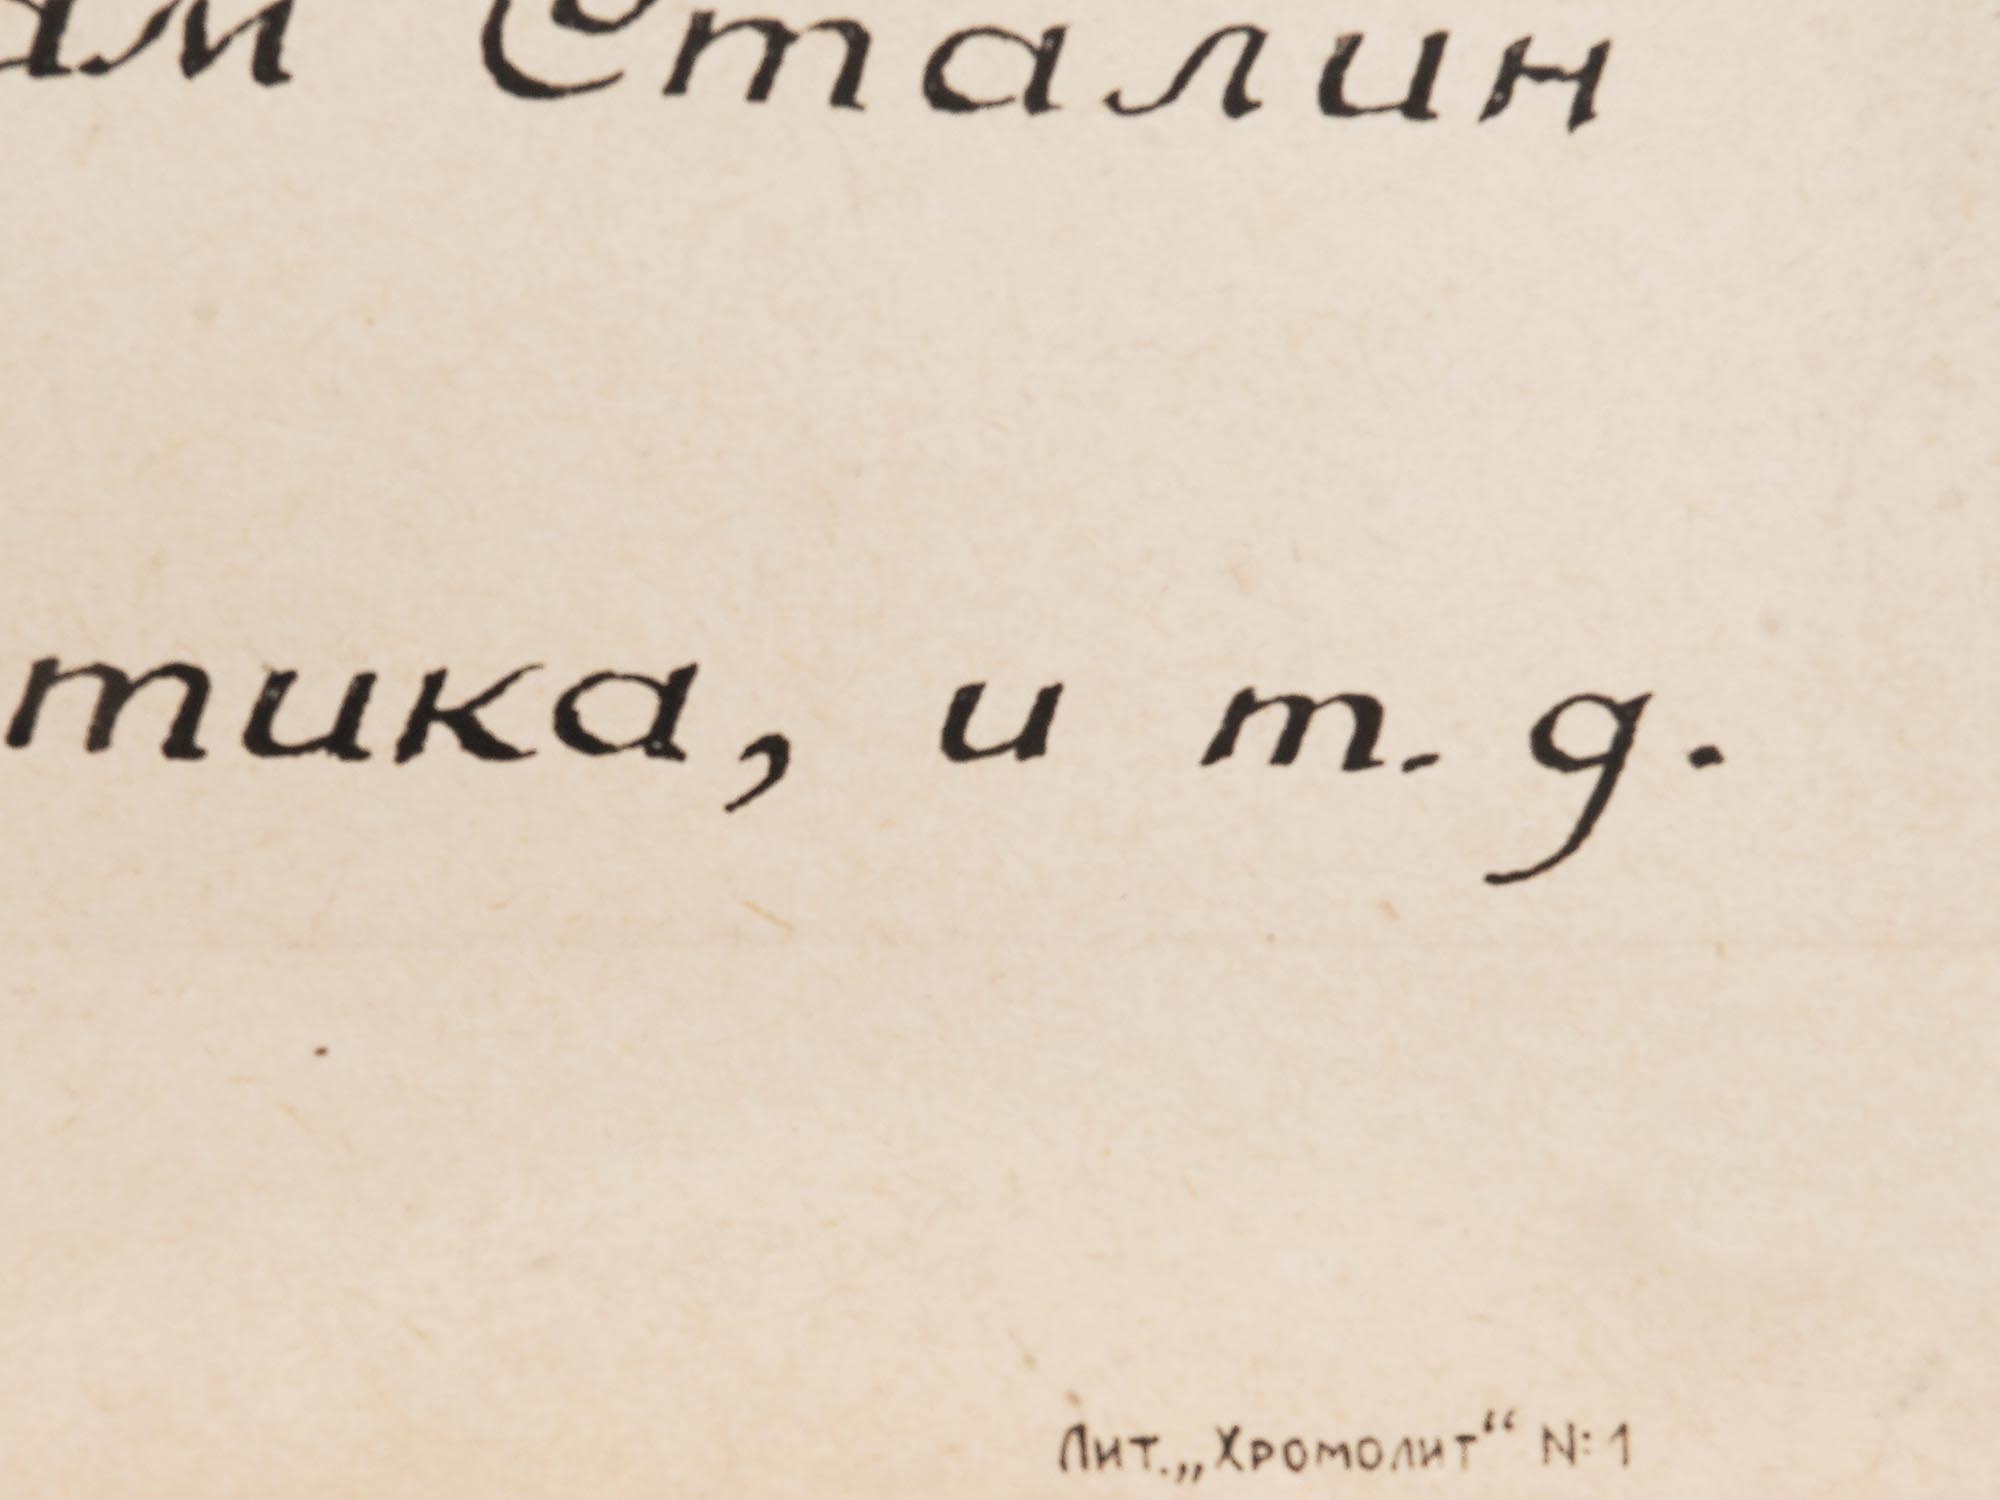 ам Сталин
тика, и т. д.
Лит. „Хромолит“ N: 1